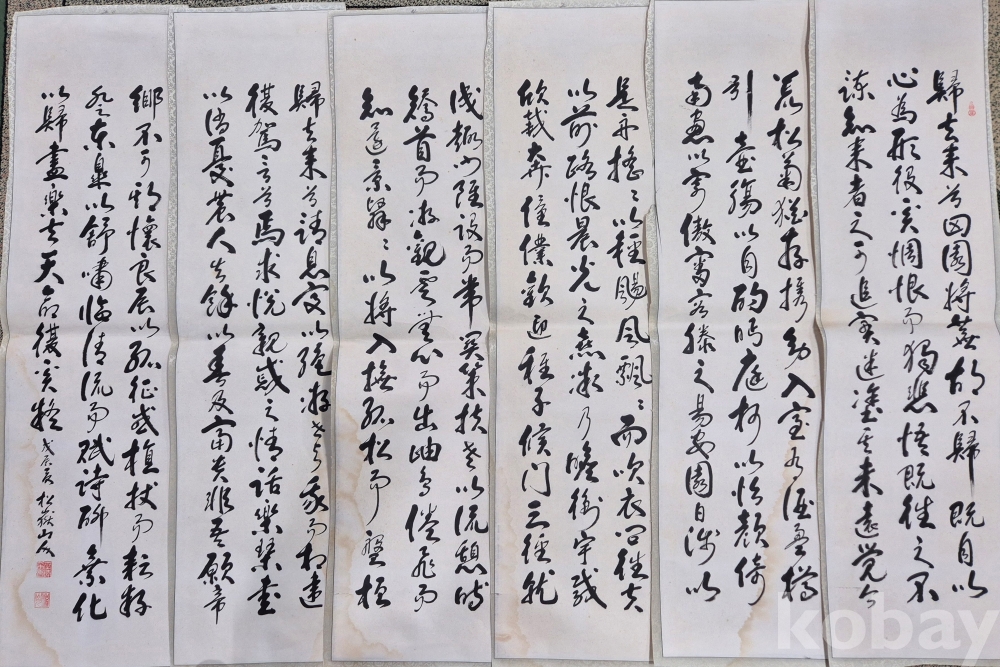 歸去來兮田園將蕪胡不歸既自以
心為形役奚惆悵而獨悲悟既往之不
諫知來者之可追實迷塗其未遠覺今
荒松菊猶存携幼入室有酒盈樽
引壺觴以自酌眄庭柯以怡顔倚
南窓以寄傲審容膝之易安園日涉以
是舟搖〻以輕颺風飄〻而吹衣問征夫
以前路恨晨光之熹微乃瞻衡宇載
欣載奔僮僕歡迎稚子候門三徑就
成趣門雖設而常關策扶老以流憩時
矯首而游觀雲無心而出岫鳥倦飛而
知還景翳〻以將入撫孤松而盤桓
歸去來兮請息交以絶游世與我而相違
復駕言兮焉求悅親戚之情話樂琴書
以消憂農人告余以春及富貴非吾願帝
鄉不可期懷良辰以孤征或植杖而耘耔
登東皐以舒嘯臨清流而賦詩聊乘化
以歸盡樂夫天命復奚疑 戊辰夏 松嶽山人
kobay